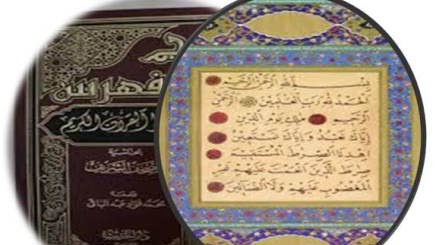 فهرس
القرآن الكريم
محمد فؤاد عبد الباقي
بسم الله الرحمن الرحيم
الحمد لله رب العلمين الرحمن
الرحيم ملك يوم الدين
إياك نعبد وإياك نستعين
اهدنا الصرط المستقيم
صرط الذين أنعمت عليهم غير
المغضوب عليهم ولا الضالين